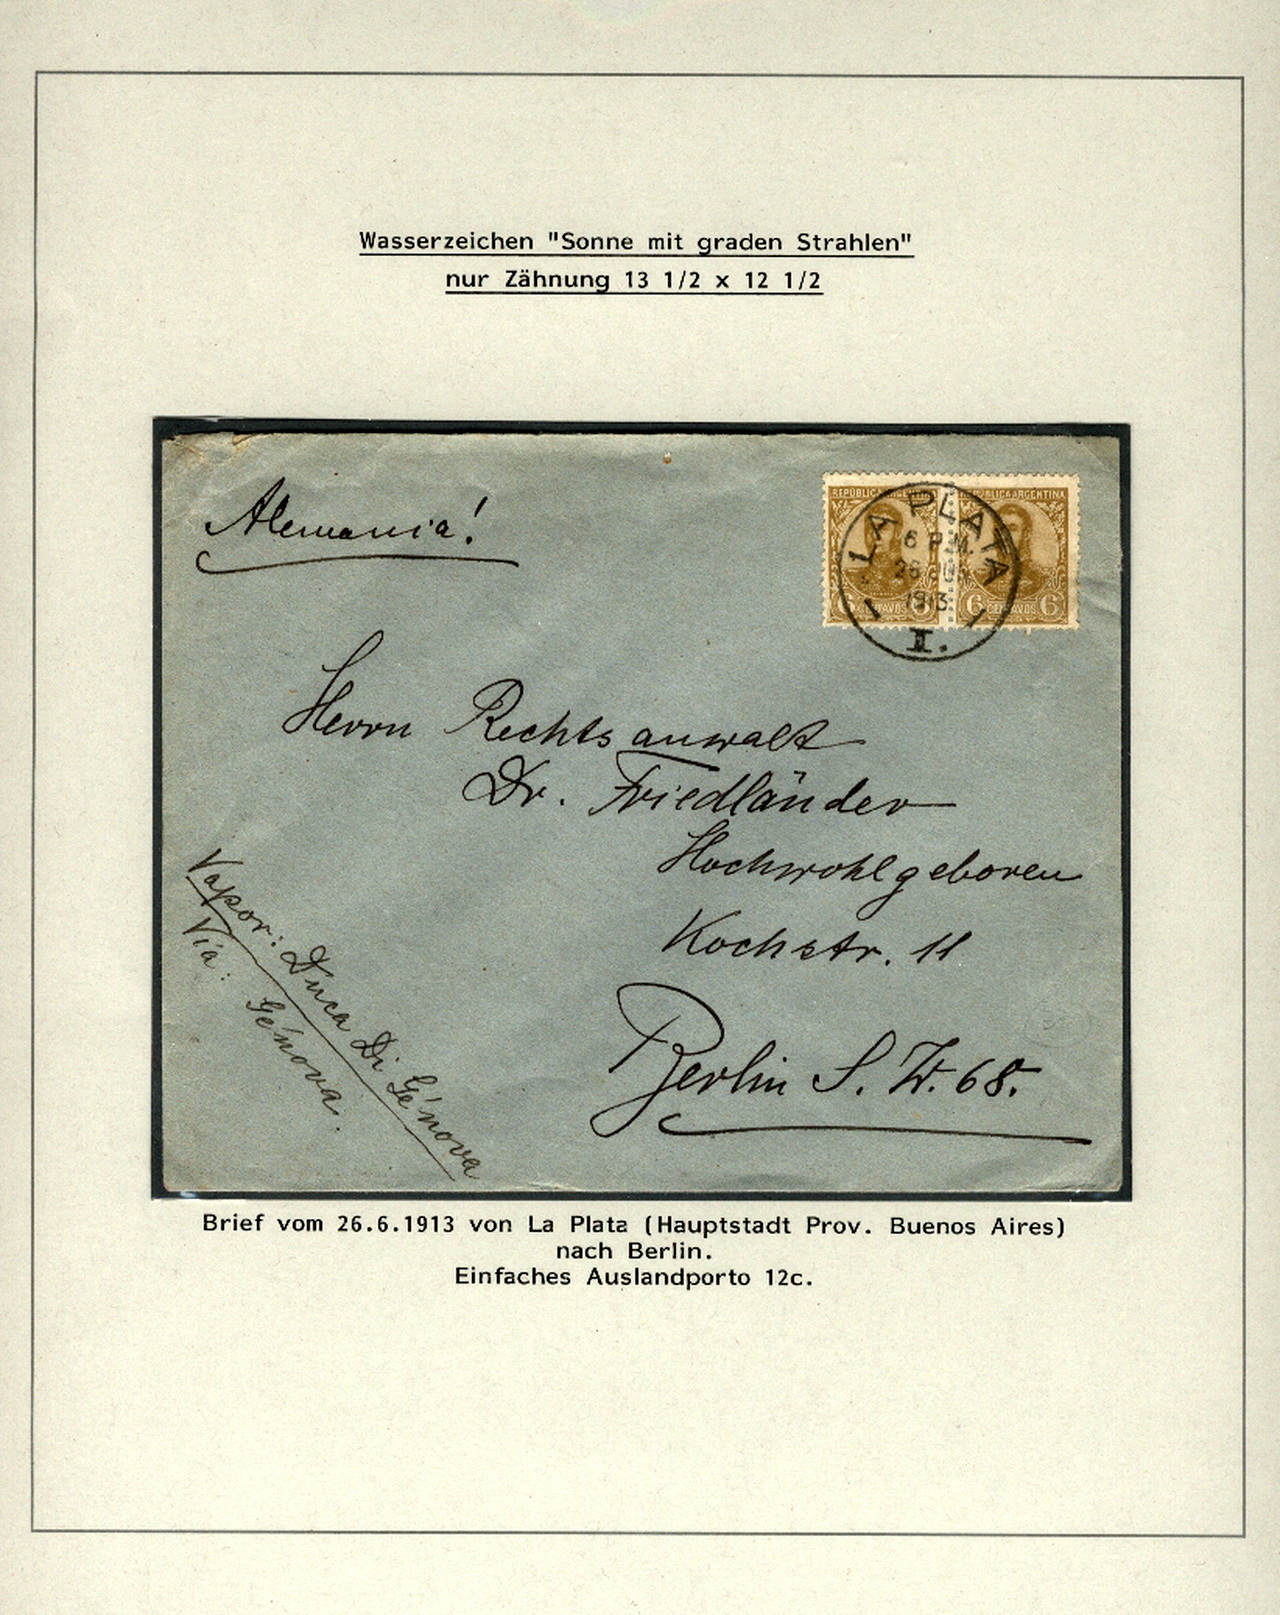 Wasserzeichen "Sonne mit graden Strahlen"
nur Zähnung 13 1/2 x 12 1/2
Alemania!
REPÚBLICA ARGENTINA
REPÚBLICA ARGENTINA
LA PLATA
6 P.M.
26 JUN
1913
I.
6 CENTAVOS 6
6 CENTAVOS 6
Herrn Rechtsanwalt
Dr. Friedländer
Hochwohlgeboren
Kochstr. 11
Berlin S. W. 68.
Vapor: Duca Di Génova
Via: Génova.
Brief vom 26.6.1913 von La Plata (Hauptstadt Prov. Buenos Aires)
nach Berlin.
Einfaches Auslandporto 12c.